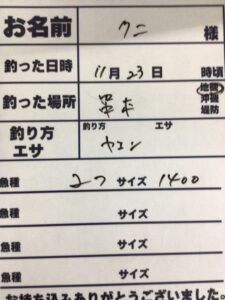 お名前 クニ 様
釣った日時 11月23日 時頃
釣った場所 串本 地磯 沖磯 堤防
釣り方 エサ 釣り方 ヤエン エサ
魚種 2つ サイズ 1400
魚種 サイズ
魚種 サイズ
魚種 サイズ
お持ち込みありがとうございました。